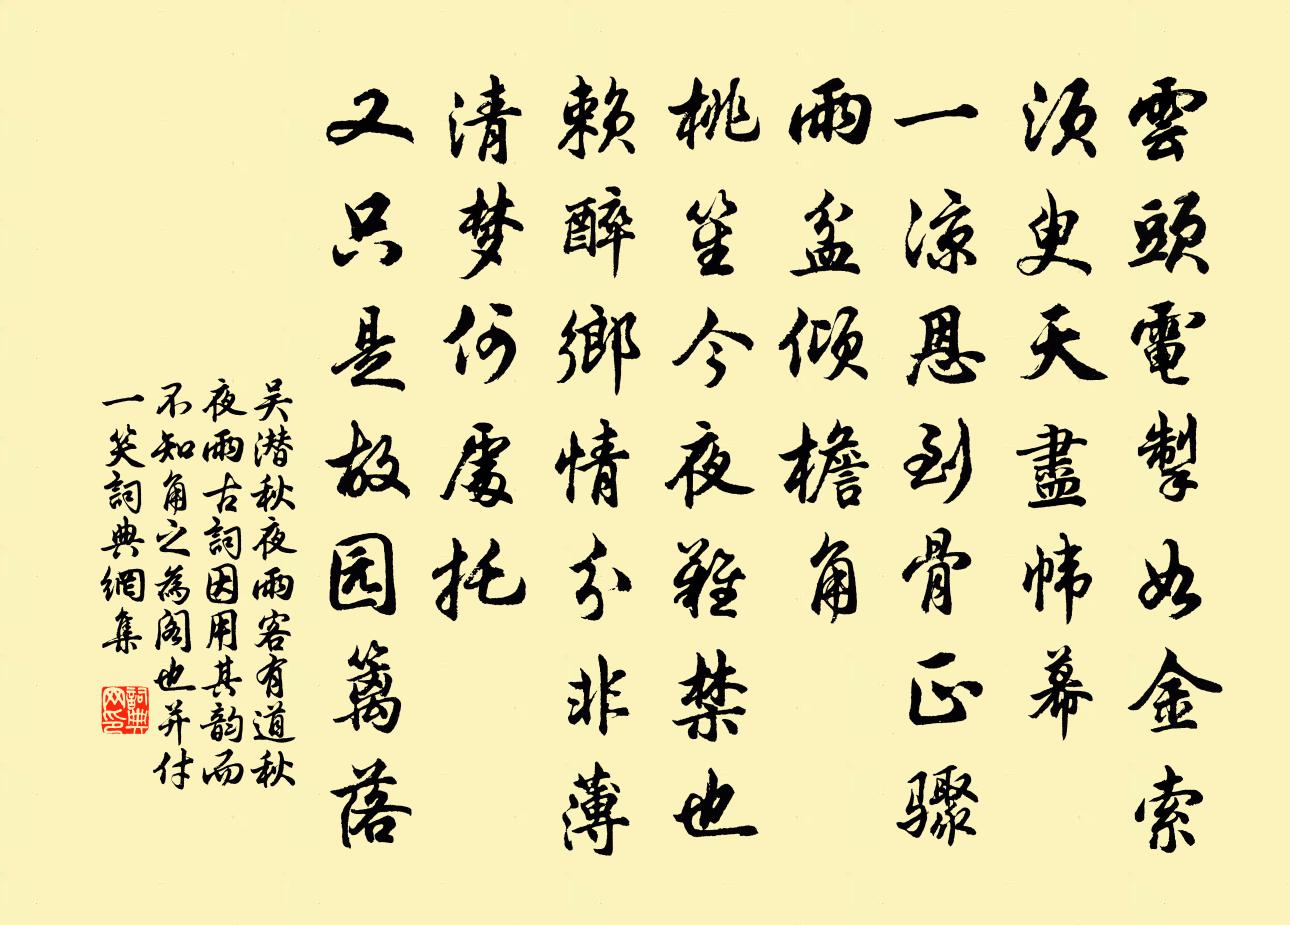 雲頭電掣如金索
須臾天盡幃幕
一涼恩到骨正驟
雨盆傾檐角
桃笙今夜難禁也
賴醉鄉情分非薄
清梦何處托
又只是故园篱落
吴潜秋夜雨客有道秋
夜雨古詞因用其韵而
不知角之為閣也并付
一笑詞典網集
詞典网印